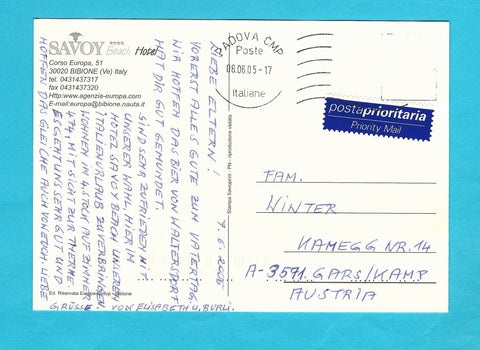 SAVOY ****
Beach Hotel
Corso Europa, 51
30020 BIBIONE (Ve) Italy
tel. 0431437317
fax 0431437320
http://www.agenzia-europa.com
E-mail:europa@bibione.nauta.it
4.6.2005
LIEBE ELTERN!
VORERST ALLES GUTE ZUM VATERTAG.
WIR HOFFEN DAS BIER VON WALTERSDORF
HAT DIR GUT GEMUNDET.
SIND SEHR ZUFRIEDEN MIT
UNSERER WAHL, HIER IM
HOTEL SAVOY BEACH UNSEREN
ITALIENURLAUB ZU VERBRINGEN.
WOHNEN IM 4.STOCK AUF ZIMMER
474 MIT SICHT ZUR THERME
ES GEHT UNS SEHR GUT UND
HOFFEN DAS GLEICHE AUCH VON EUCH. LIEBE
GRÜSSE VON ELISABETH U. BURLI.
Ed. Riservata Europa Group - Bibione
Stampa Saxoprint - PN - riproduzione vietata
PADOVA CMP
Poste
06.06.05-17
Italiane
postaprioritaria
Priority Mail
FAM.
WINTER
KAMEGG NR.14
A-3591 GARS/KAMP
AUSTRIA